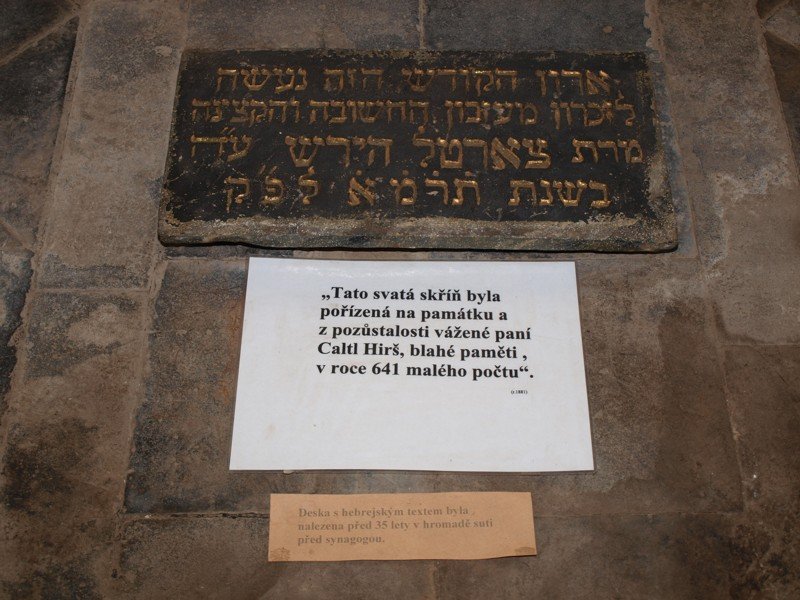 ארון הקודש הזה נעשה
לזכרון מעזבון החשובה והקצינה
מרת צארטל הירש ע״ה
בשנת תרמא לפק
„Tato svatá skříň byla
pořízená na památku a
z pozůstalosti vážené paní
Caltl Hirš, blahé paměti ,
v roce 641 malého počtu“.
(r.1881)
Deska s hebrejským textem byla
nalezena před 35 lety v hromadě suti
před synagogou.